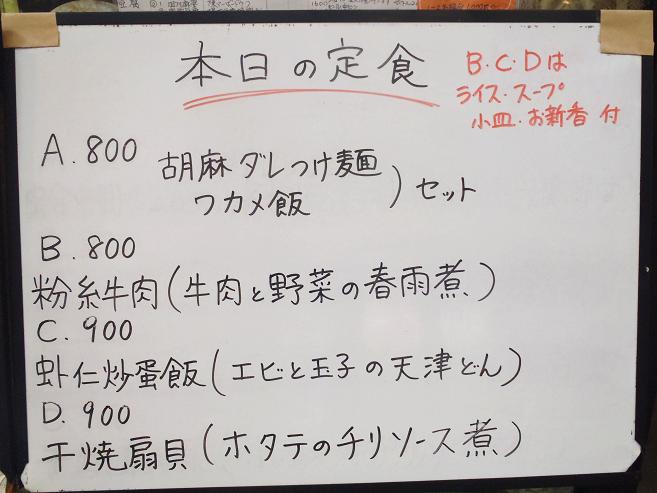 本日の定食
B・C・Dは
ライス・スープ
小皿・お新香 付
A. 800
胡麻ダレつけ麺
ワカメ飯
) セット
B. 800
粉糸牛肉(牛肉と野菜の春雨煮)
C. 900
虾仁炒蛋飯(エビと玉子の天津どん)
D. 900
干焼扇貝(ホタテのチリソース煮)